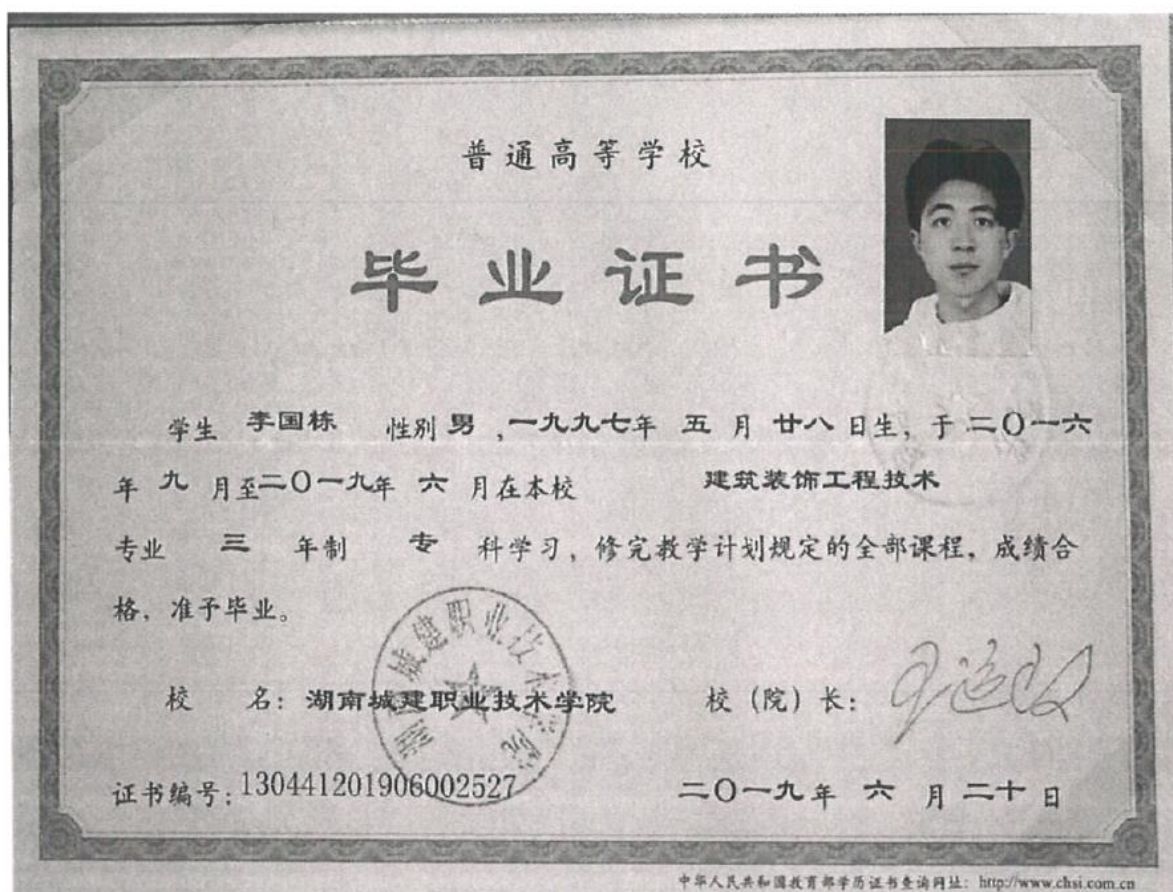 普通高等学校
毕业证书
学生 李国栋 性别 男 ,一九九七年 五 月 廿八 日生，于 二〇一六
年 九 月至二〇一九年 六 月在本校 建筑装饰工程技术
专业 三 年制 专 科学习，修完教学计划规定的全部课程，成绩合
格，准予毕业。
湖南城建职业技术学院
校 名：湖南城建职业技术学院 校（院）长：
证书编号：130441201906002527 二〇一九年 六 月 二十 日
中华人民共和国教育部学历证书查询网址：http://www.chsi.com.cn